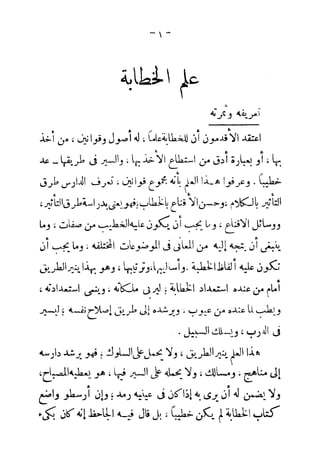 - ١ -
علم الخطابة
تعريفه وثمرته
اعتقد الأقدمون أن للخطابة علماً ، له أصول وقوانين ، من أخذ
بها ، أو بعبارة أدق من استطاع الأخذ بها ، والسير فى طريقها - عد
خطيباً . وعرفوا هذا العلم بأنه مجموع قوانين ، تعرف الدارس طرق
التأثير بالكلام ، وحسن الأقناع بالخطاب ، فهو يعنى بدراسة طرق التأثير ،
ووسائل الاقناع ، وما يجب أن يكون عليه الخطيب من صفات ، وما
ينبغى أن يتجه إليه من المعانى فى الموضوعات المختلفه ، وما يجب أن
تكون عليه ألفاظ الخطبة . وأساليبها ، وترتيبها ، وهو بهذا ينير الطريق
أمام من عنده استعداد الخطابة ؛ ليربى ملكاته ، وينمى استعداداته ،
ويطب لما عنده من عيوب . ويرشده إلى طريق إصلاح نفسه ؛ ليسير
فى الدرب ، ويسلك السبيل .
هذا العلم ينير الطريق ، ولا يحمل على السلوك ؛ فهو يرشد دارسه
إلى مناهج ، ومسالك ، ولا يحمله على السير فيها ، هو يعطيه المصباح ،
ولا يضمن له أن يرى به إذا كان فى عينيه رمد ؛ وإن أرسطو واضع
كتاب الخطابة لم يكن خطيباً ، بل قال فيه الجاحظ إنه كان بكىء